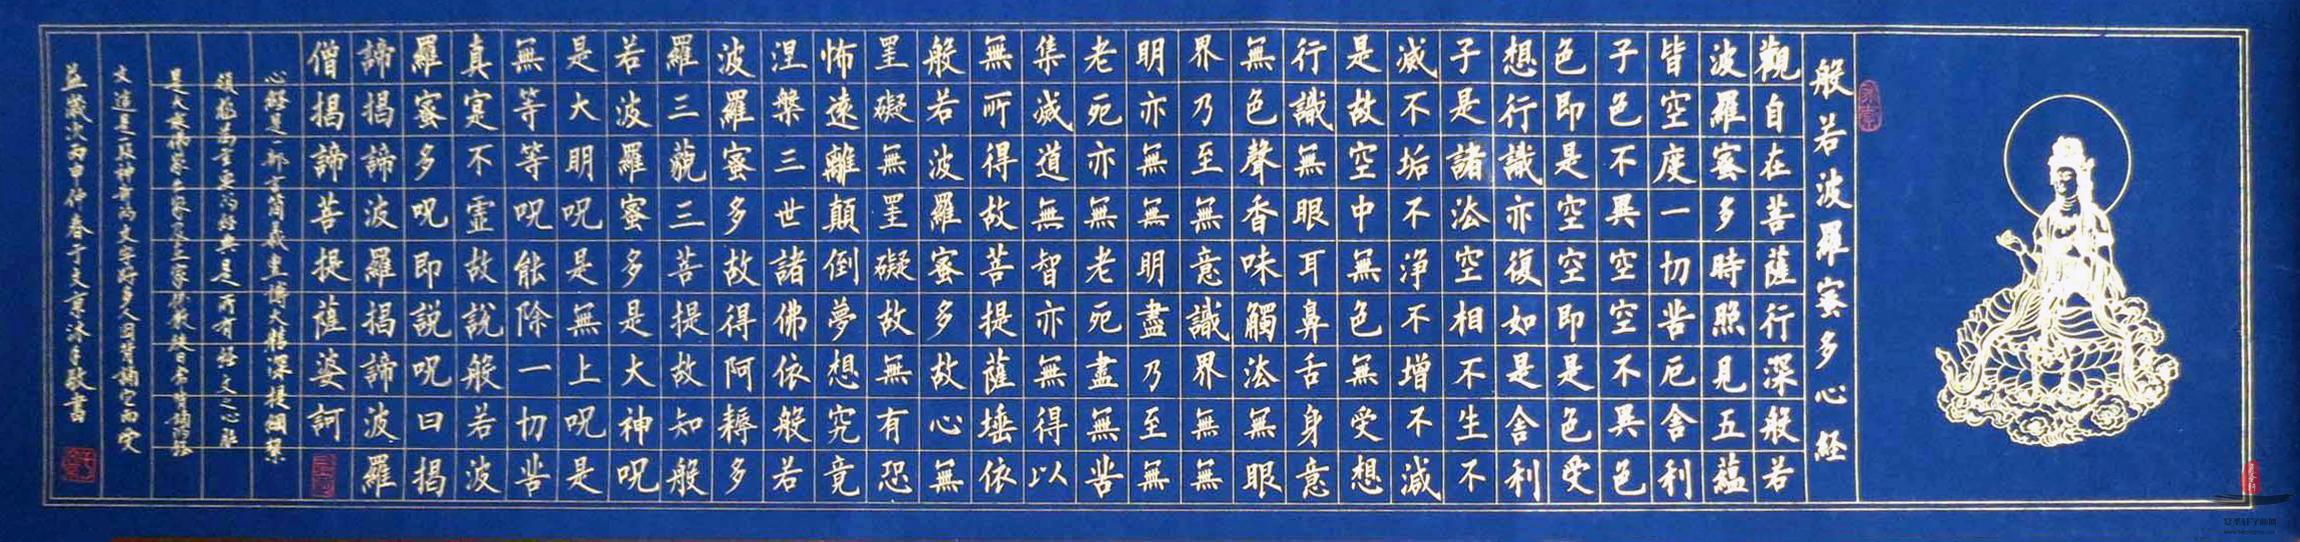 般若波羅蜜多心経
觀自在菩薩行深般若
波羅蜜多時照見五蘊
皆空度一切苦厄舍利
子色不異空空不異色
色即是空空即是色受
想行識亦復如是舍利
子是諸法空相不生不
滅不垢不淨不增不減
是故空中無色無受想
行識無眼耳鼻舌身意
無色聲香味觸法無眼
界乃至無意識界無無
明亦無無明盡乃至無
老死亦無老死盡無苦
集滅道無智亦無得以
無所得故菩提薩埵依
般若波羅蜜多故心無
罣礙無罣礙故無有恐
怖遠離顛倒夢想究竟
涅槃三世諸佛依般若
波羅蜜多故得阿耨多
羅三藐三菩提故知般
若波羅蜜多是大神呪
是大明呪是無上呪是
無等等呪能除一切苦
真寔不虛故說般若波
羅蜜多呪即說呪曰揭
諦揭諦波羅揭諦波羅
僧揭諦菩提薩婆訶
心經是一部言簡義豊博大精深提綱挈
領極為重要的經典是所有經文之心
是大乘佛家出家及在家佛教徒日常背誦的経
文這是一段神奇的文字許多人因背誦它而受
益歲次丙申仲春于文京沐手敬書